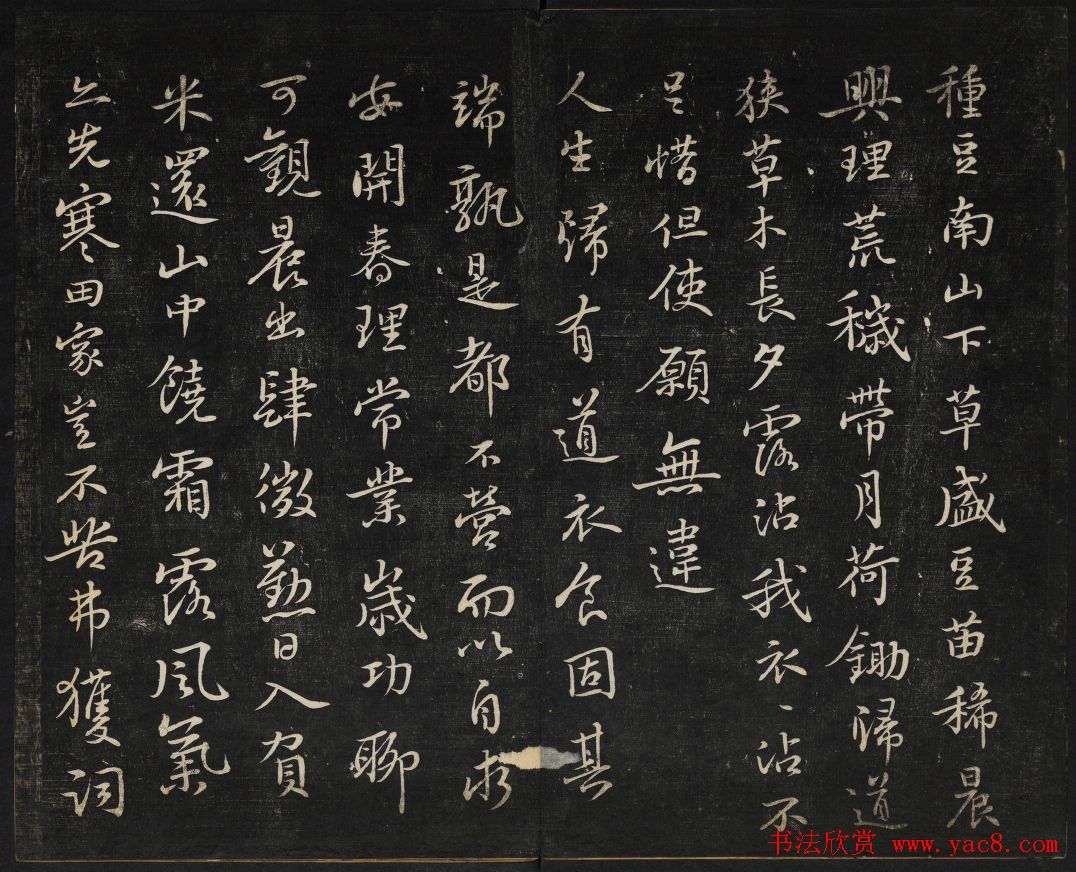 種豆南山下草盛豆苗稀晨
興理荒穢帶月荷鋤歸道
狹草木長夕露沾我衣〻沾不
足惜但使願無違
人生歸有道衣食固其
端孰是都不營而以自求
安開春理常業歲功聊
可觀晨出肆微勤日入負
米還山中饒霜露風氣
亦先寒田家豈不苦弗獲詞
书法欣赏 www.yac8.com